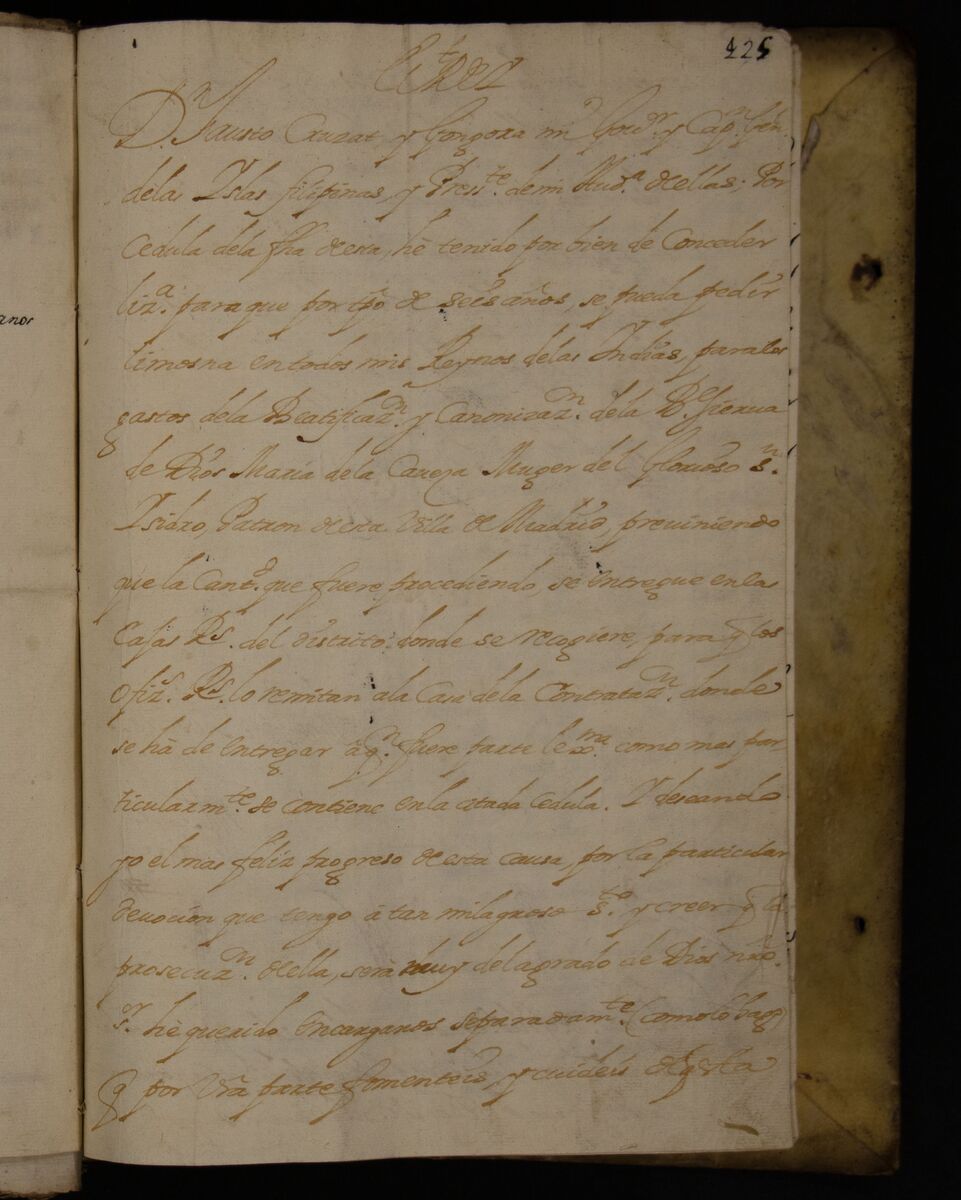 425
El Rey
Dn. Fausto Cruzat, y Gongora mi Govor. y Capn. Gen.
delas Yslas filipinas, y Presite. de mi Auda. de ellas; Por
Cedula dela fha de esta, hè tenido por bien de Conceder
liza. para que por tpo de seis años, se pueda pedir
limosna en todos mis Reynos delas Yndias, para los
gastos dela Beatificazn. y Canonizazn. dela Be. sierua
de Dios Maria dela Caveza Muger del Glorioso Sn.
Ysidro, Patron de esta Villa de Madrid, preuiniendo
que la Cantd. que fuere procediendo, se entregue en las
Cajas Rs. del distrito donde se recogiere, para q los
ofizs. Rs. lo remitan ala Casa dela Contratazn. donde
se hà de entregar à qn. fuere parte lexma. como mas par
ticularmte. se contiene en la citada Cedula. Y deseando
yo el mas feliz progreso de esta causa, por la particular
deuocion que tengo à tan milagroso Sto. y creer q la
prosecuzn. de ella, serà muy del agrado de Dios nro.
Sr. hè querido encargaros separadamte. (como lo hago)
q por vra parte fomenteis, y cuideis de q esta
anos